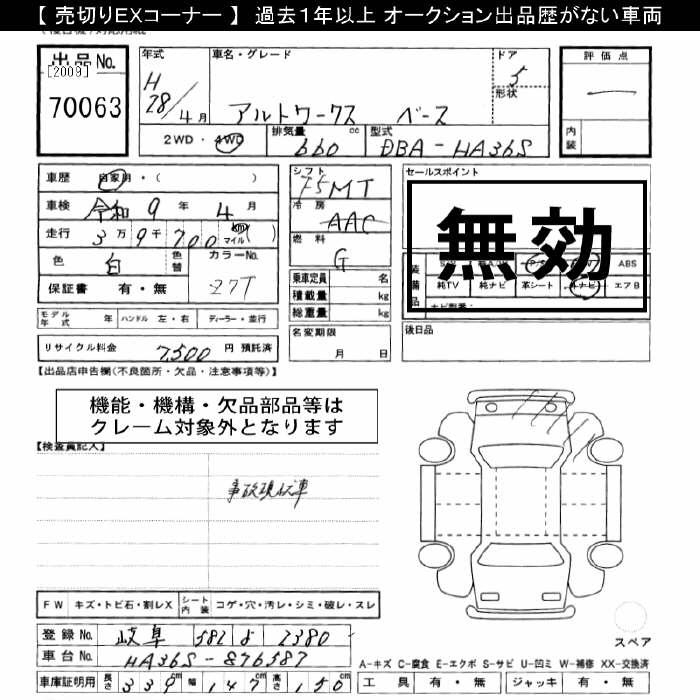 【 売切りEXコーナー 】 過去1年以上 オークション出品歴がない車両
出品No.
[2009]
70063
年式
H
28/4月
車名・グレード
アルトワークス ベース
ドア
5
形状
評価点
内装
2WD・4WD
排気量 660 cc
型式 DBA-HA36S
車歴 自家用・( )
車検 令和 9 年 4 月
走行 3万9千700 km マイル ( )
色 白
色替
カラーNo.
Z7T
保証書 有・無
シフト
F5MT
冷房
AAC
燃料
G
乗車定員 名
積載量 kg
総重量 kg
セールスポイント
無効
ABS
純TV 純ナビ 革シート エアB
モデル年式 年 ハンドル 左・右 ディーラー・並行
リサイクル料金 7,500 円 預託済
名変期限
月 日
後日品
【出品店申告欄(不良箇所・欠品・注意事項等)】
機能・機構・欠品部品等は
クレーム対象外となります
【検査員記入】
事故現状車
FW キズ・トビ石・割レX シート内装 コゲ・穴・汚レ・シミ・破レ・スレ
登録No. 岐阜 582 よ 2380
車台No. HA36S-876587
車庫証明用 長さ 339cm 幅 147cm 高さ 150cm
スペア
A-キズ C-腐食 E-エクボ S-サビ U-凹ミ W-補修 XX-交換済
工具 有・無 ジャッキ 有・無